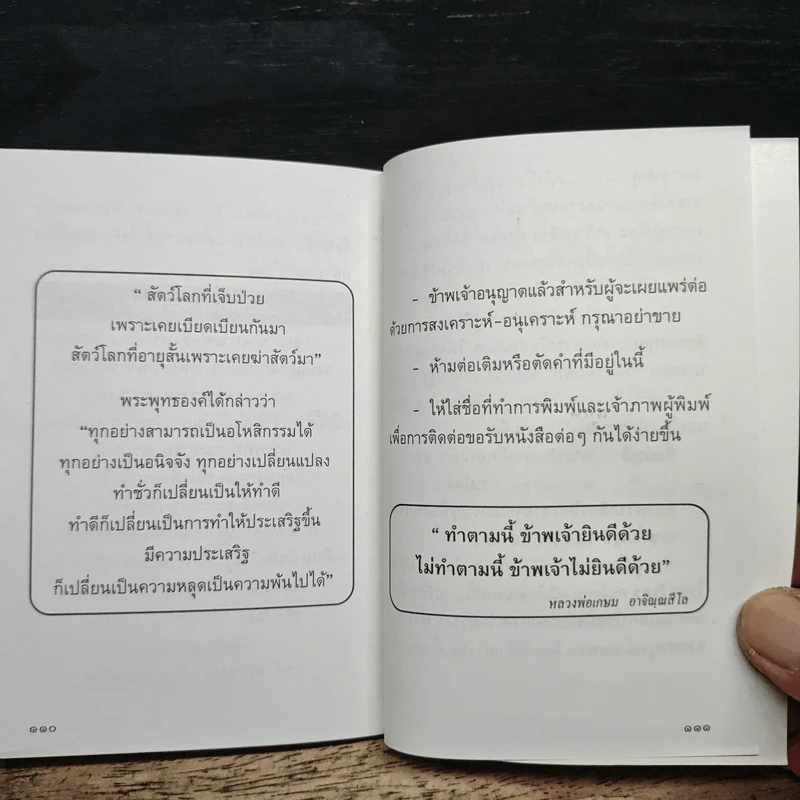 “ สัตว์โลกที่เจ็บป่วย
เพราะเคยเบียดเบียนกันมา
สัตว์โลกที่อายุสั้นเพราะเคยฆ่าสัตว์มา”
พระพุทธองค์ได้กล่าวว่า
“ทุกอย่างสามารถเป็นอโหสิกรรมได้
ทุกอย่างเป็นอนิจจัง ทุกอย่างเปลี่ยนแปลง
ทำชั่วก็เปลี่ยนเป็นให้ทำดี
ทำดีก็เปลี่ยนเป็นการทำให้ประเสริฐขึ้น
มีความประเสริฐ
ก็เปลี่ยนเป็นความหลุดเป็นความพ้นไปได้”
๑๑๐
- ข้าพเจ้าอนุญาตแล้วสำหรับผู้จะเผยแพร่ต่อ
ด้วยการสงเคราะห์-อนุเคราะห์ กรุณาอย่าขาย
- ห้ามต่อเติมหรือตัดคำที่มีอยู่ในนี้
- ให้ใส่ชื่อที่ทำการพิมพ์และเจ้าภาพผู้พิมพ์
เพื่อการติดต่อขอรับหนังสือต่อๆ กันได้ง่ายขึ้น
“ ทำตามนี้ ข้าพเจ้ายินดีด้วย
ไม่ทำตามนี้ ข้าพเจ้าไม่ยินดีด้วย”
หลวงพ่อเกษม อาจิณฺณสีโล
๑๑๑